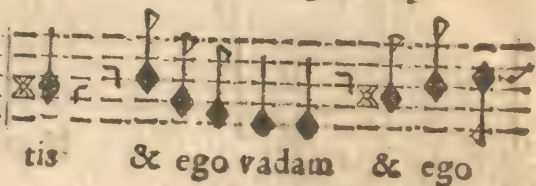 tis & ego vadam & ego